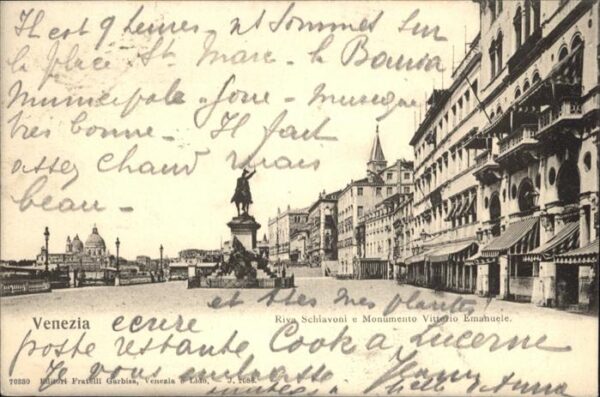 Il est 9 heures - et Sommes sur
la place St. Marc - la Banda
Municipale joue - musique
très bonne - Il fait
assez chaud mais
beau -
et tes
Riva Schiavoni e Monumento Vittorio Emanuele.
Venezia
écrire
poste restante Cook à Lucerne
Je vous embrasse
70380 Editori Fratelli Garbisa, Venezia e Lido,